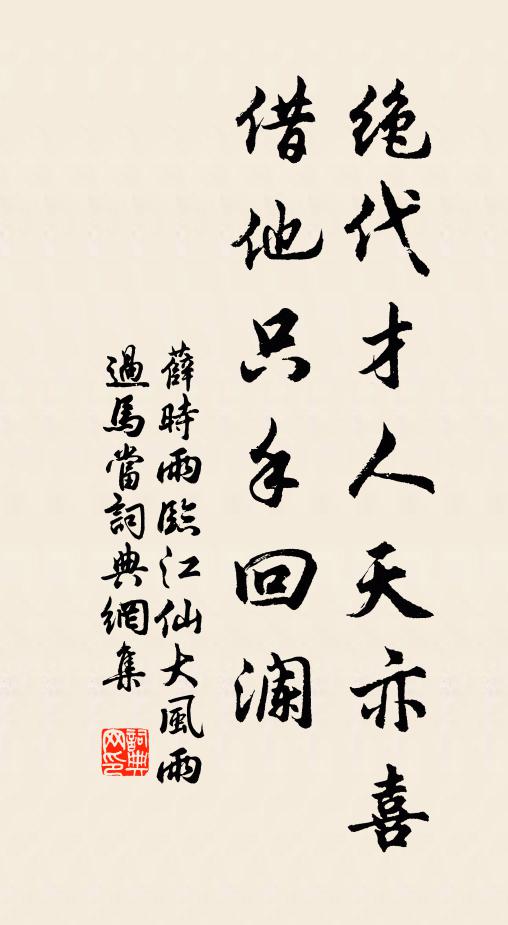 绝代才人天亦喜
借他只手回澜
薛時雨臨江仙大風雨
過馬當詞典網集
詞典网印